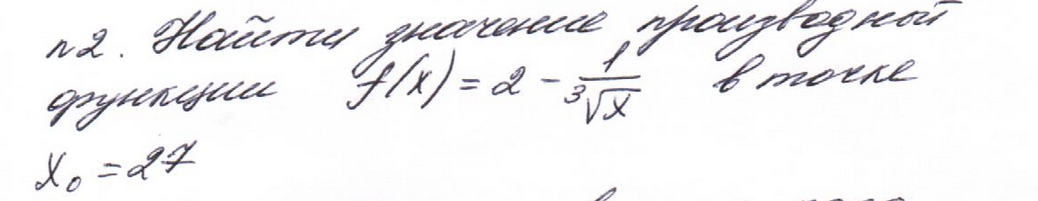 п2. Найти значение производной
функции f(x) = 2 - 1/∛x в точке
x₀ = 27